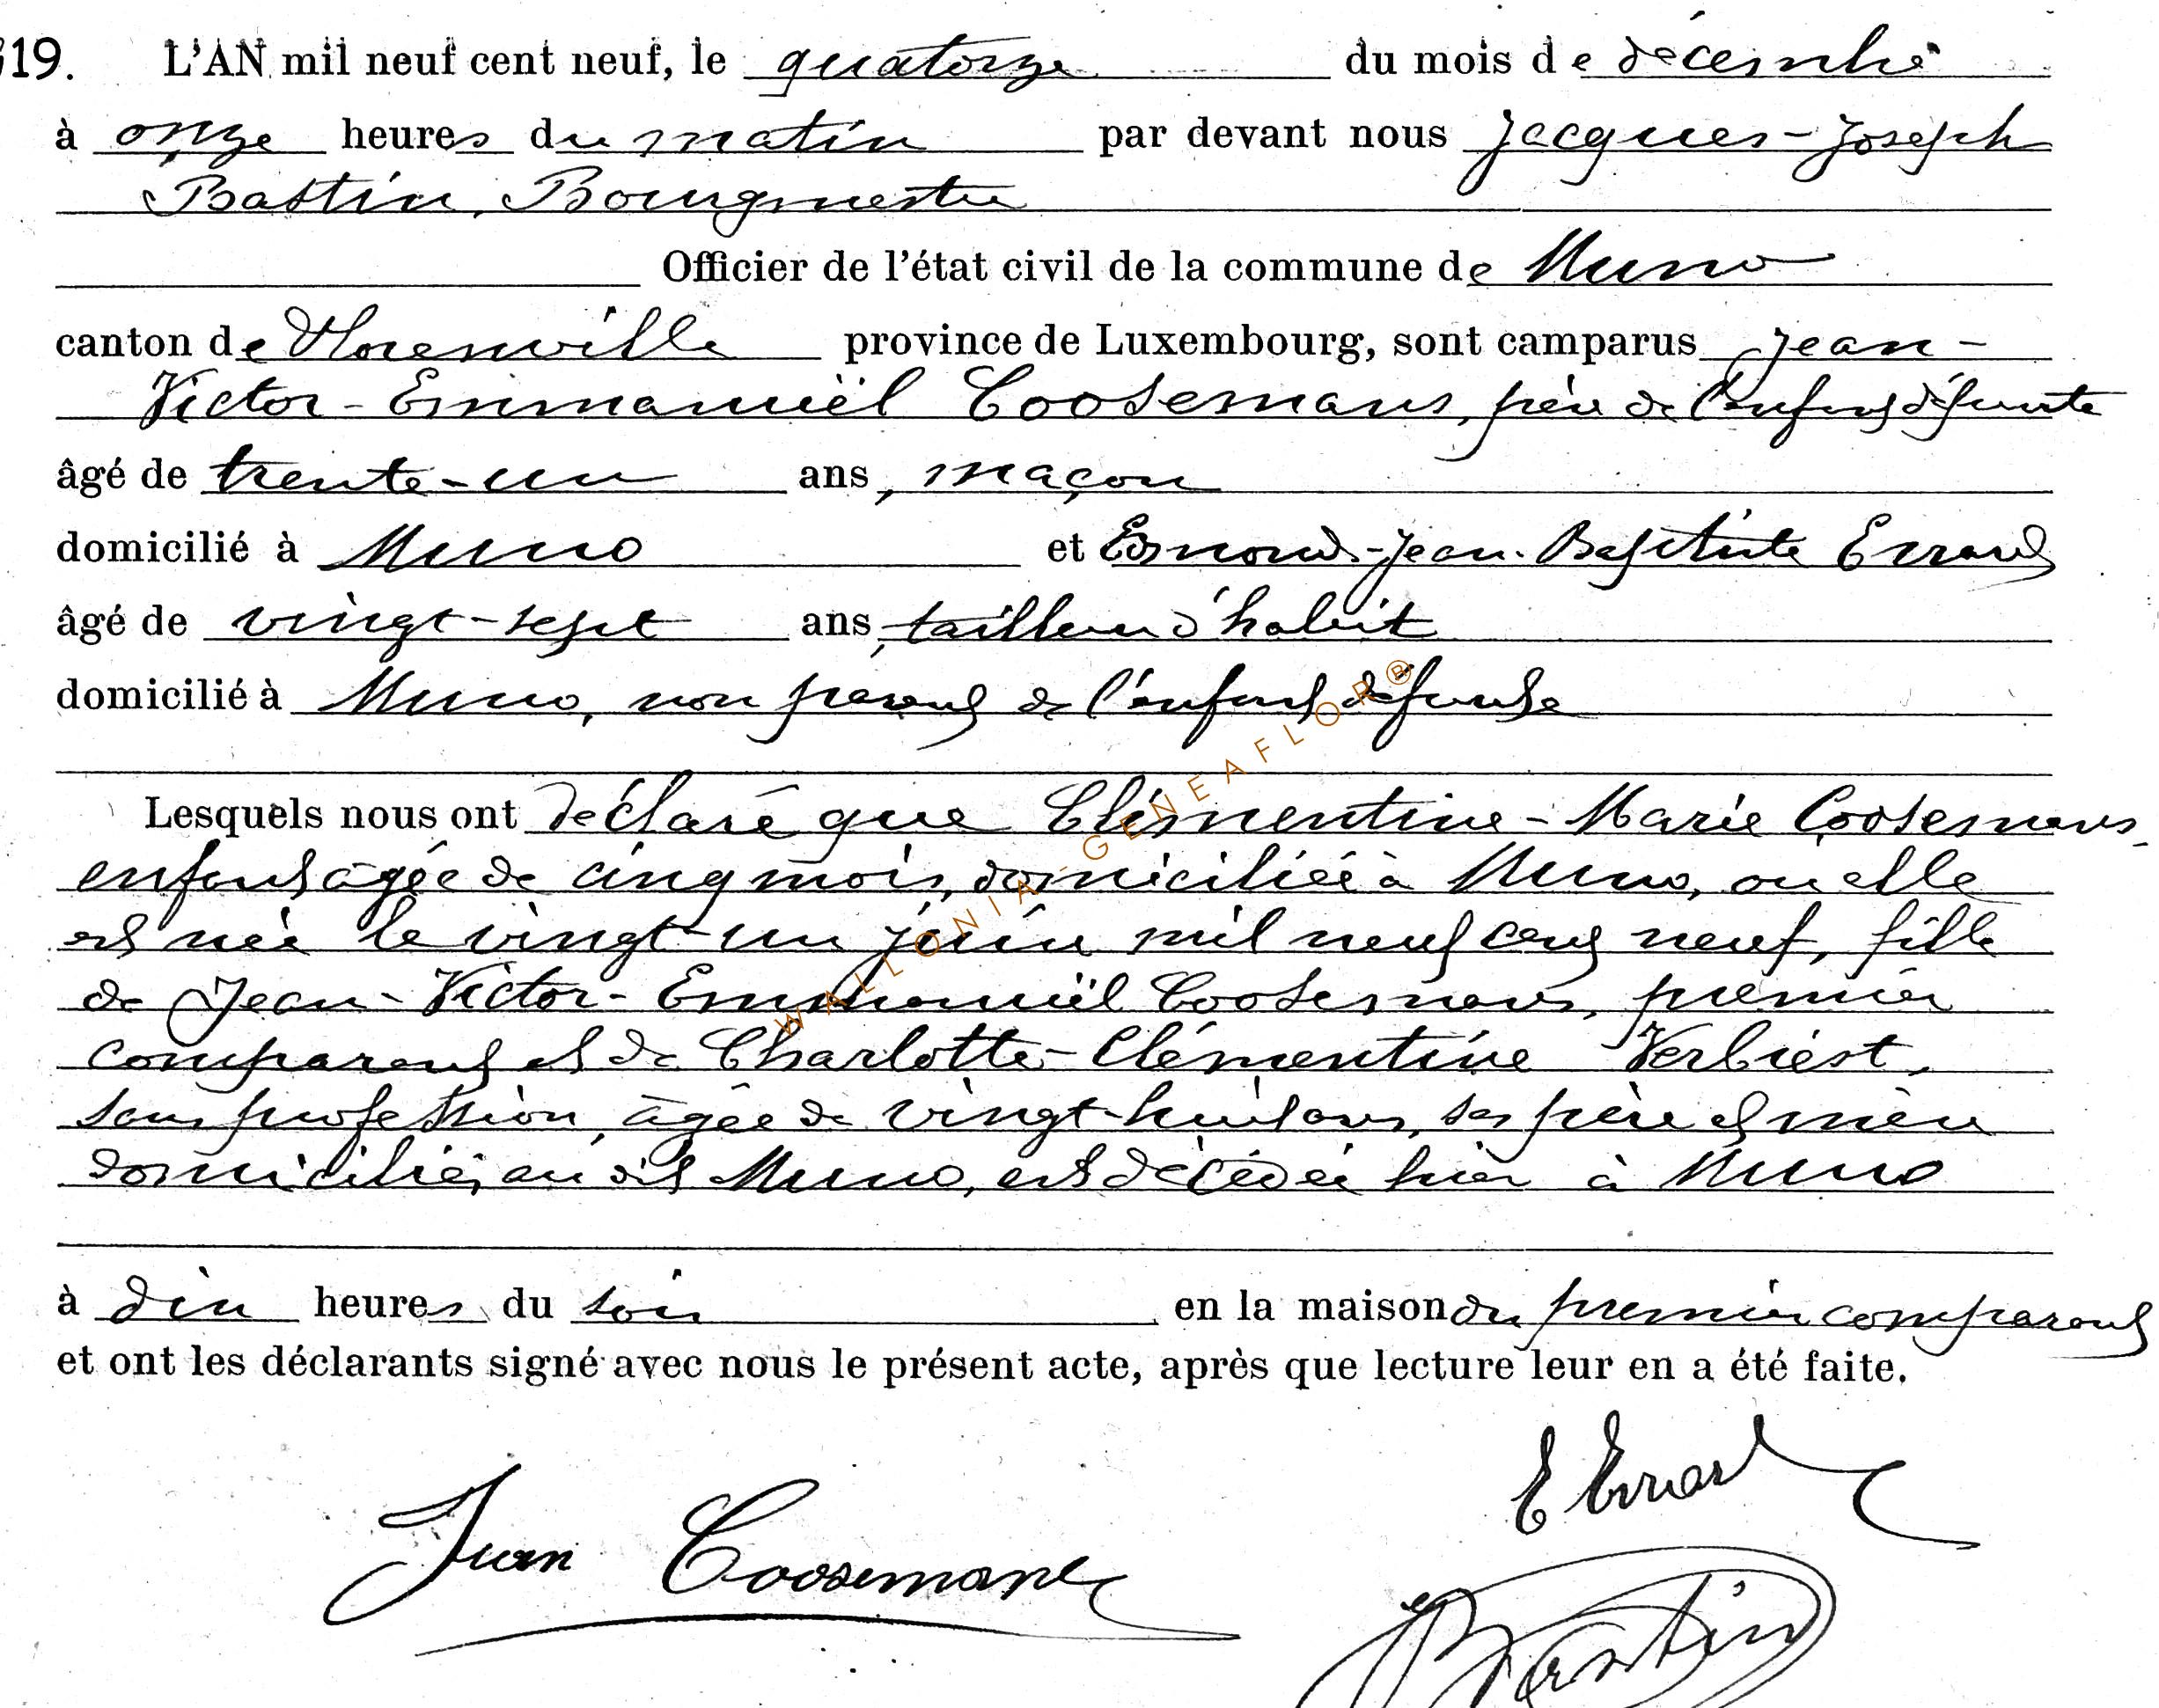 19. L'AN mil neuf cent neuf, le quatorze du mois de décembre
à onze heures du matin par devant nous Jacques-Joseph
Bastin, Bourgmestre
Officier de l'état civil de la commune de Muno
canton de Florenville province de Luxembourg, sont camparus Jean-
Victor-Emmanuël Coosemans, père de l'enfant défunte
âgé de trente-un ans, maçon
domicilié à Muno et Edmond-Jean-Baptiste Errard
âgé de vingt-sept ans, tailleur d'habit
domicilié à Muno, non parent de l'enfant défunte
Lesquels nous ont déclaré que Clémentine-Marie Coosemans,
enfant âgée de cinq mois, domiciliée à Muno, où elle
est née le vingt-un juin mil neuf cent neuf, fille
de Jean-Victor-Emmanuël Coosemans, premier
comparant et de Charlotte-Clémentine Verbiest,
sans profession, âgée de vingt-huit ans, ses père et mère
domiciliés au dit Muno, est décédée hier à Muno
à dix heures du soir en la maison du premier comparant
et ont les déclarants signé avec nous le présent acte, après que lecture leur en a été faite.
E Errard
Jean Coosemans
Bastin
WALLONIA-GENEAFLOR®